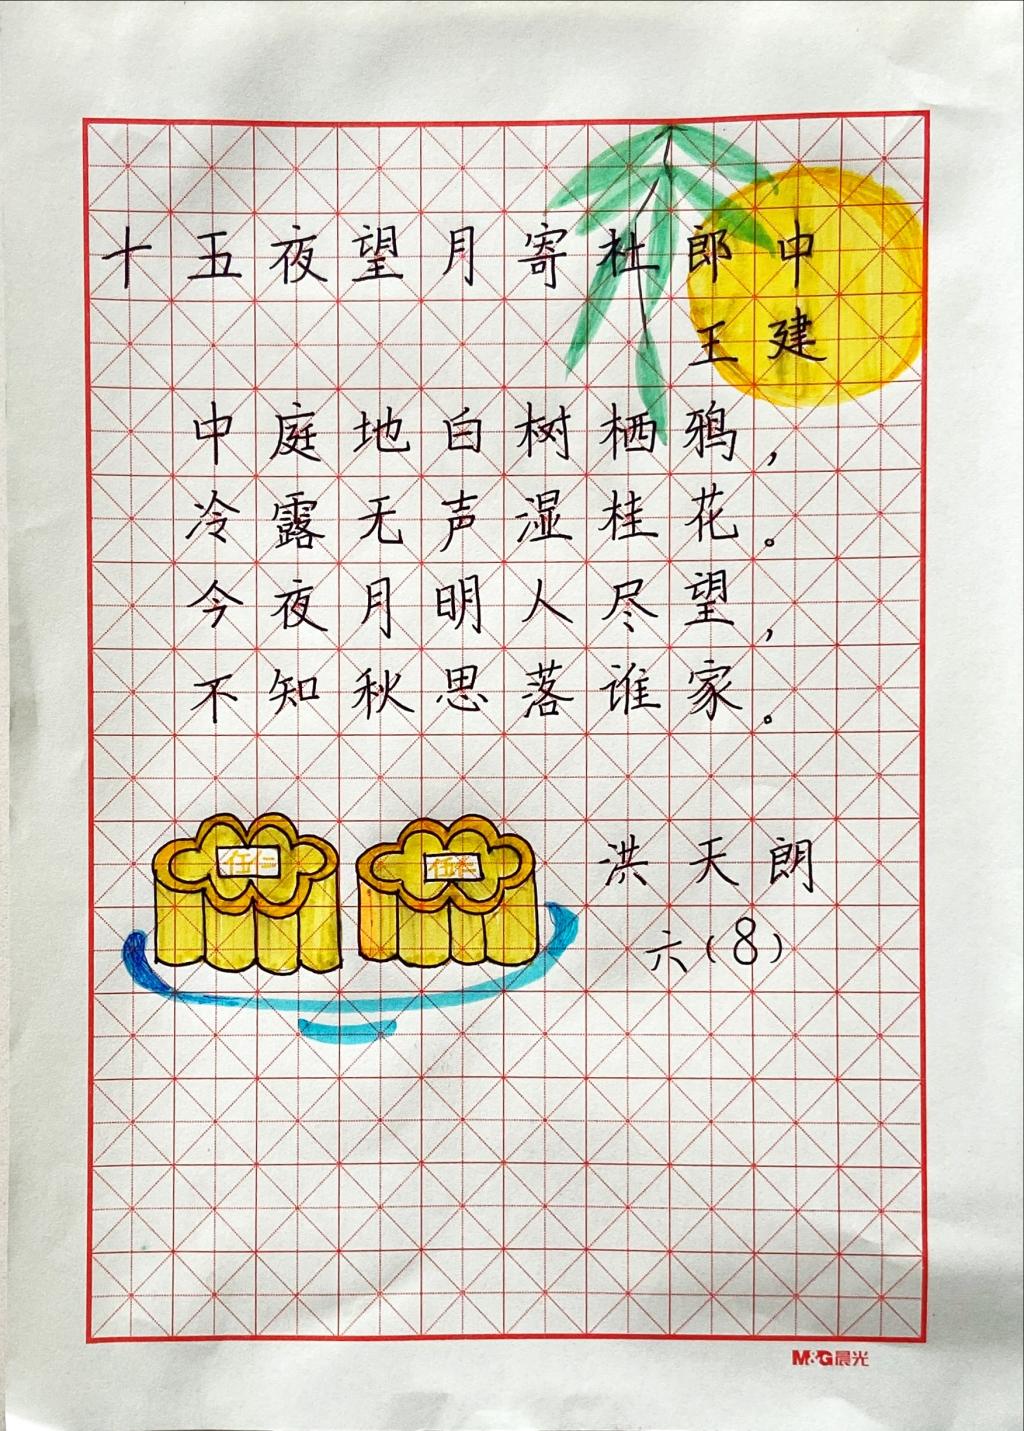 十五夜望月寄杜郎中
王建
中庭地白树栖鸦，
冷露无声湿桂花。
今夜月明人尽望，
不知秋思落谁家。
五仁
洪天朗
六（8）
M&G晨光